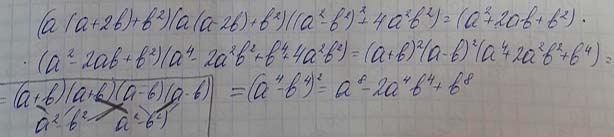 (a (a+2b)+b²)(a(a-2b)+b²)((a²-b²)²+4a²b²)=(a²+2ab+b²)·
·(a²-2ab+b²)(a⁴-2a²b²+b⁴+4a²b²)=(a+b)²(a-b)²(a⁴+2a²b²+b⁴)=
=(a+b)(a+b)(a-b)(a-b) =(a⁴-b⁴)²=a⁸-2a⁴b⁴+b⁸
a²-b² a²-b²)